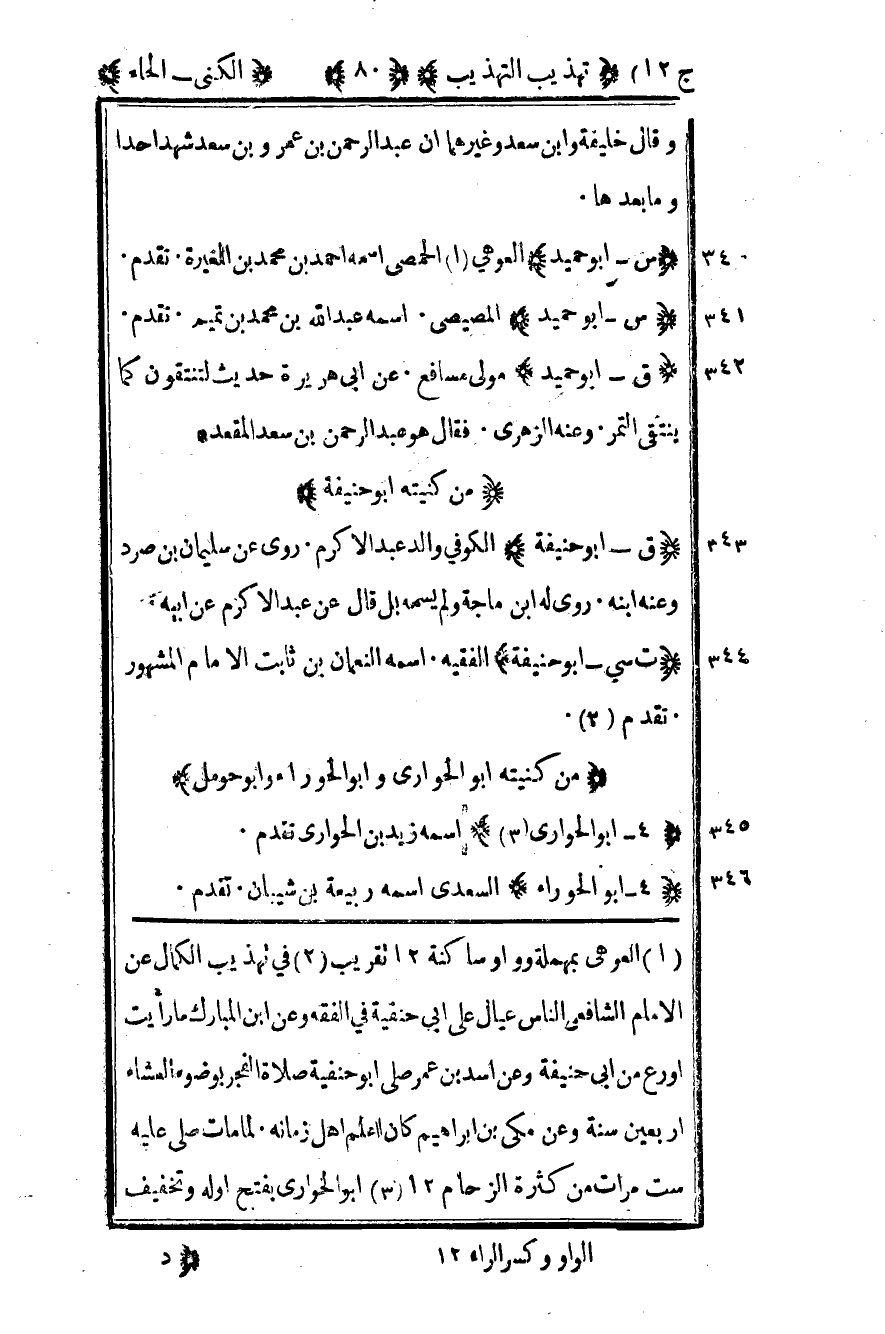 ج ١٢) ﴿ تهذيب التهذيب ﴾ ﴿ ٨٠ ﴾ ﴿ الكنى ـ الحاء ﴾
و قال خليفة وابن سعد وغيرهما ان عبد الرحمن بن عمر و بن سعد شهد احدا
و ما بعد ها ٠
٣٤٠ ﴿ س ـ ابو حميد ﴾ العوهي (١) الحمصى اسمه احمد بن محمد بن المغيرة ٠ تقدم ٠
٣٤١ ﴿ س ـ ابو حميد ﴾ المصيصى ٠ اسمه عبد الله بن محمد بن تميم ٠ تقدم ٠
٣٤٢ ﴿ ق ـ ابو حميد ﴾ مولى مسافع ٠ عن ابى هر يرة حديث لتنتقون كما
ينتقى التمر ٠ وعنه الزهرى ٠ فقال هو عبد الرحمن بن سعد المقعد ٠
﴿ من كنيته ابو حنيفة ﴾
٣٤٣ ﴿ ق ـ ابو حنيفة ﴾ الكوفي والد عبد الاكرم ٠ روى عن سليمان بن صرد
وعنه ابنه ٠ روى له ابن ماجة ولم يسمه بل قال عن عبد الاكرم عن ابيه ٠
٣٤٤ ﴿ ت سي ـ ابو حنيفة ﴾ الفقيه ٠ اسمه النعمان بن ثابت الامام المشهور
٠ تقدم (٢) ٠
﴿ من كنيته ابو الحوارى و ابو الحوراء وابو حومل ﴾
٣٤٥ ﴿ ٤ ـ ابو الحوارى (٣) ﴾ اسمه زيد بن الحوارى تقدم ٠
٣٤٦ ﴿ ٤ ـ ابو الحوراء ﴾ السعدى اسمه ربيعة بن شيبان ٠ تقدم ٠
(١) العوهى بمهملة وو او ساكنة ١٢ تقريب (٢) في تهذيب الكمال عن
الامام الشافعى الناس عيال على ابي حنفية في الفقه وعن ابن المبارك ما رأيت
اورع من ابي حنيفة وعن اسد بن عمر صلى ابو حنفية صلاة الفجر بوضوء العشاء
اربعين سنة وعن مكي بن ابراهيم كان اعلم اهل زمانه ٠ لما مات صلى عليه
ست مرات من كثرة الزحام ١٢ (٣) ابو الحوارى بفتح اوله وتخفيف
الواو وكسر الراء ١٢ ﴿ د